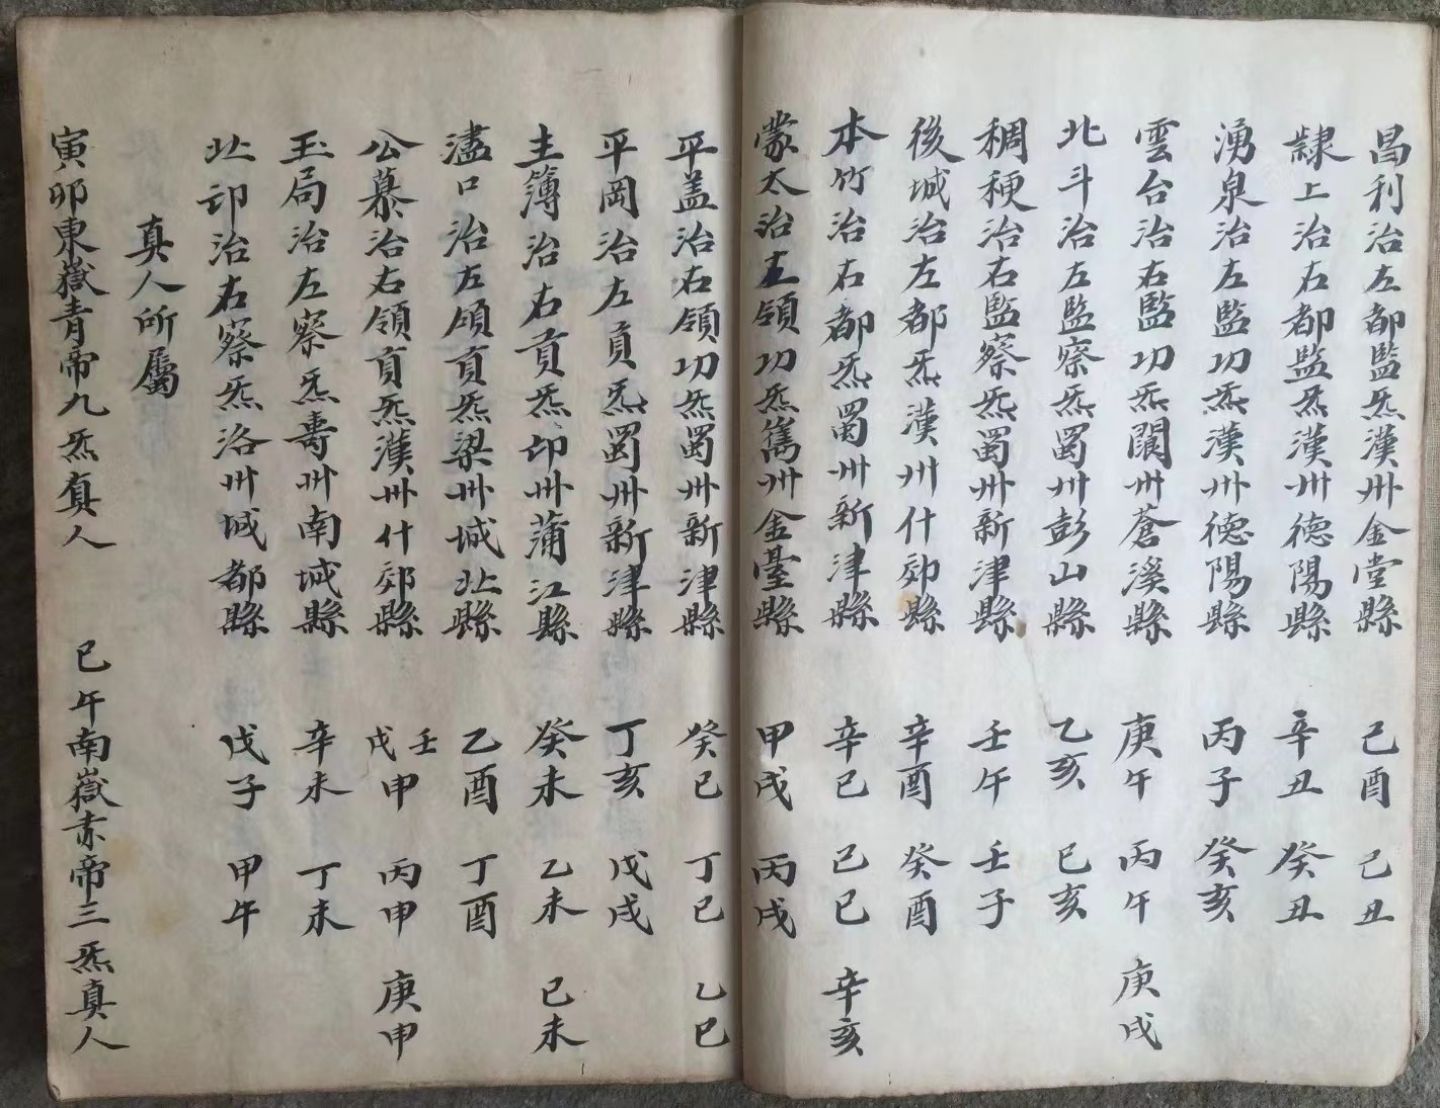 昌利治左都監炁漢州金堂縣 己酉 己丑
隸上治右都監炁漢州德陽縣 辛丑 癸丑
湧泉治左監功炁漢州德陽縣 丙子 癸亥
雲台治右監功炁閬州蒼溪縣 庚午 丙午 庚戌
北斗治左監察炁蜀州彭山縣 乙亥 己亥
稠稉治右監察炁蜀州新津縣 壬午 壬子
後城治左都炁漢州什邡縣 辛酉 癸酉
本竹治右都炁蜀州新津縣 辛巳 己巳 辛亥
蒙太治左領功炁雋州金臺縣 甲戌 丙戌
平盖治右領功炁蜀州新津縣 癸巳 丁巳 乙巳
平岡治左貢炁蜀州新津縣 丁亥 戊戌
主簿治右貢炁卭州蒲江縣 癸未 乙未 己未
濜口治左領貢炁梁州城北縣 乙酉 丁酉
公慕治右領貢炁漢州什邡縣 壬戌申 丙申 庚申
玉局治左察炁壽州南城縣 辛未 丁未
北卭治右察炁洛州城都縣 戊子 甲午
真人所屬
寅卯東嶽青帝九炁真人 巳午南嶽赤帝三炁真人